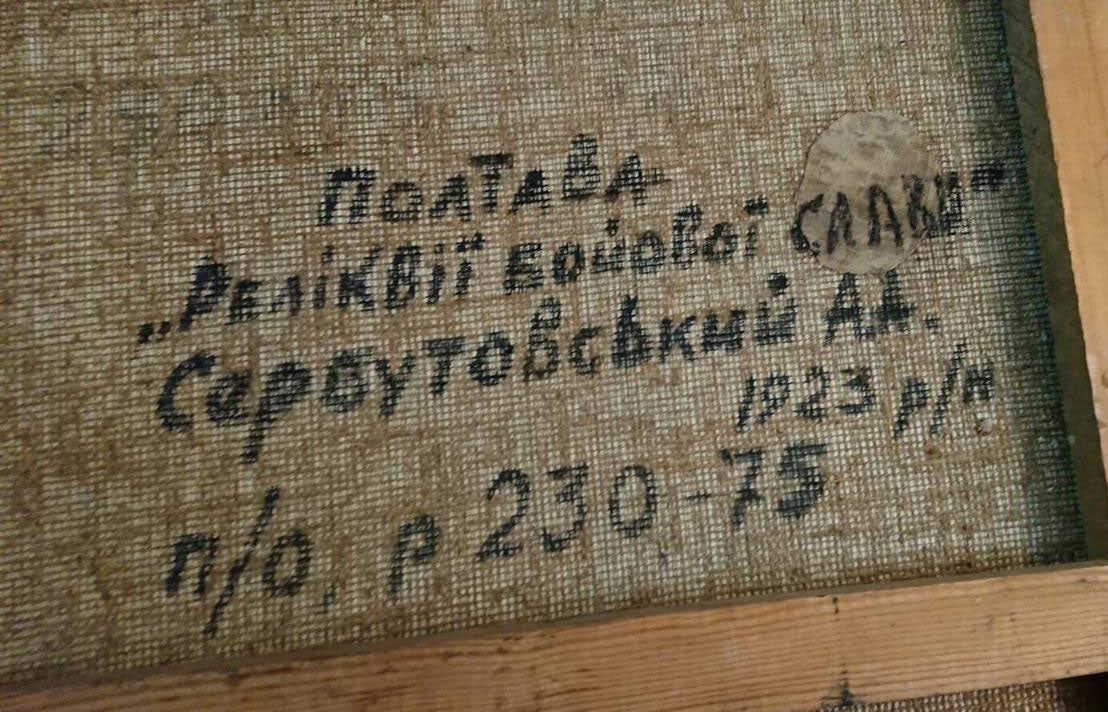 Полтава
„Реліквії бойової слави"
Сербутовський А.А.
1923 р/н
п/о, р 230-75